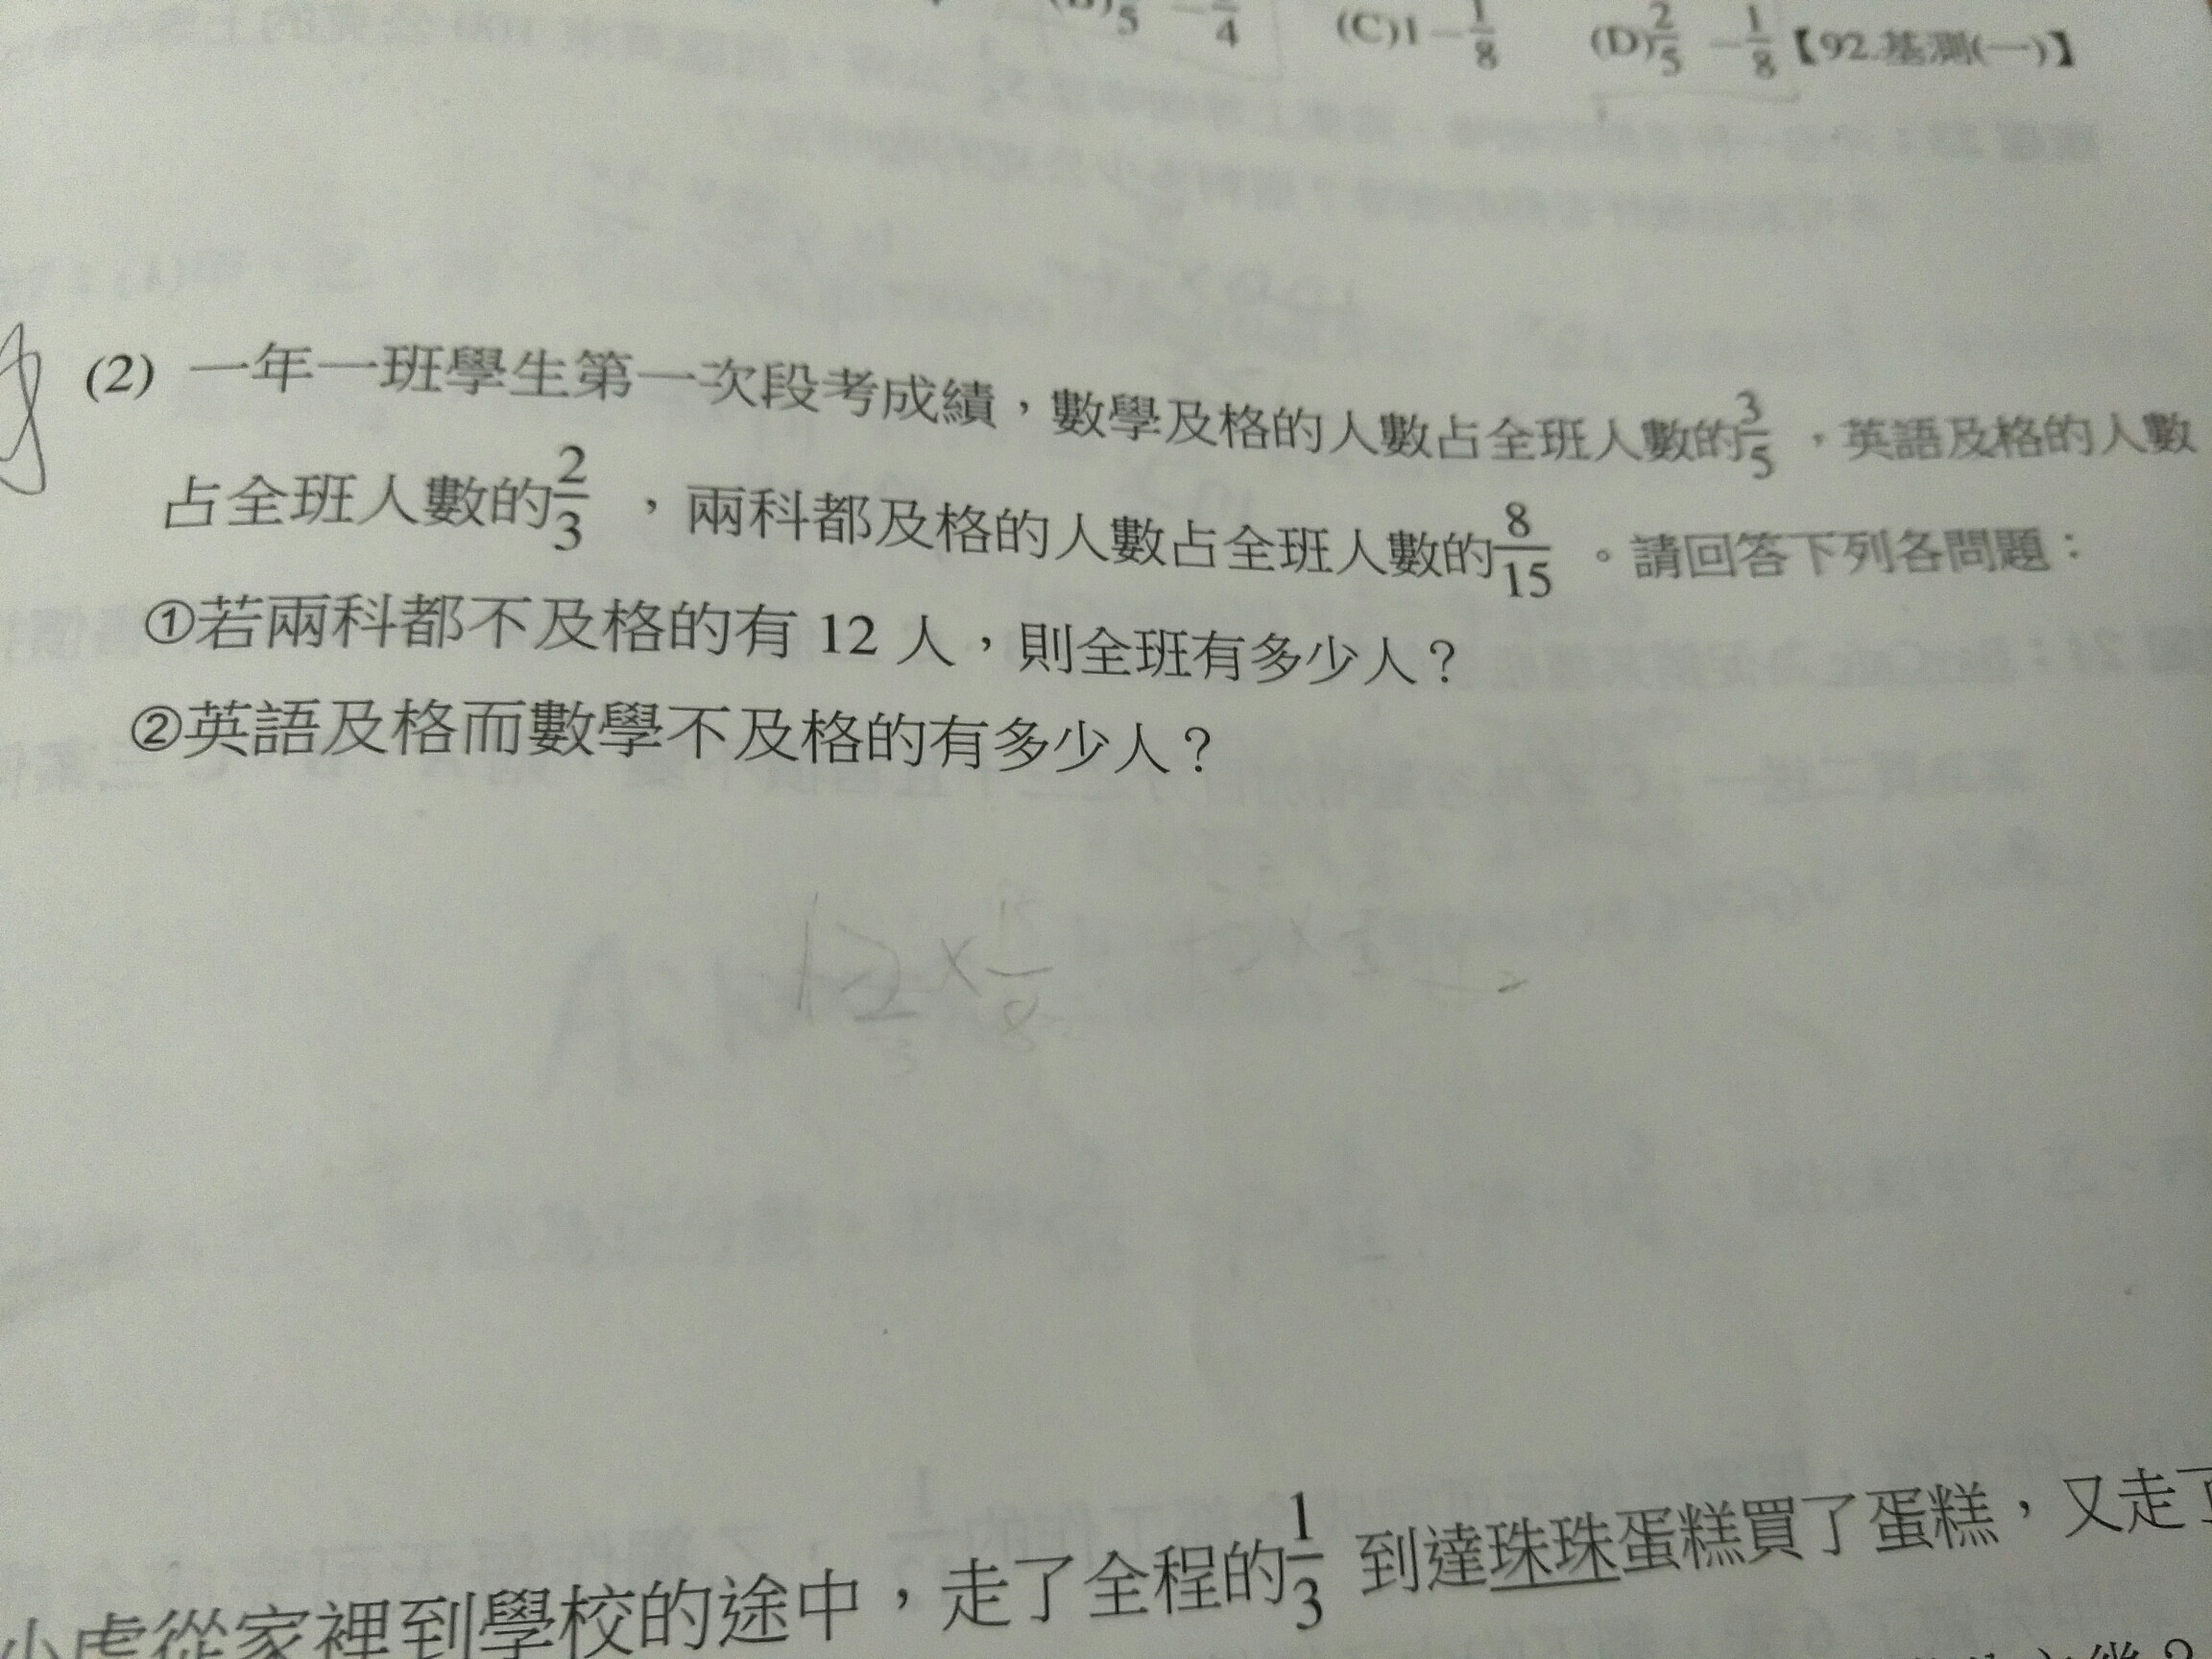 (C)1－1/8 (D)2/5 －1/8【92.基測(一)】
(2) 一年一班學生第一次段考成績，數學及格的人數占全班人數的3/5，英語及格的人數
占全班人數的2/3，兩科都及格的人數占全班人數的8/15。請回答下列各問題：
①若兩科都不及格的有 12 人，則全班有多少人？
②英語及格而數學不及格的有多少人？
12×15/8
小虎從家裡到學校的途中，走了全程的1/3 到達珠珠蛋糕買了蛋糕，又走了